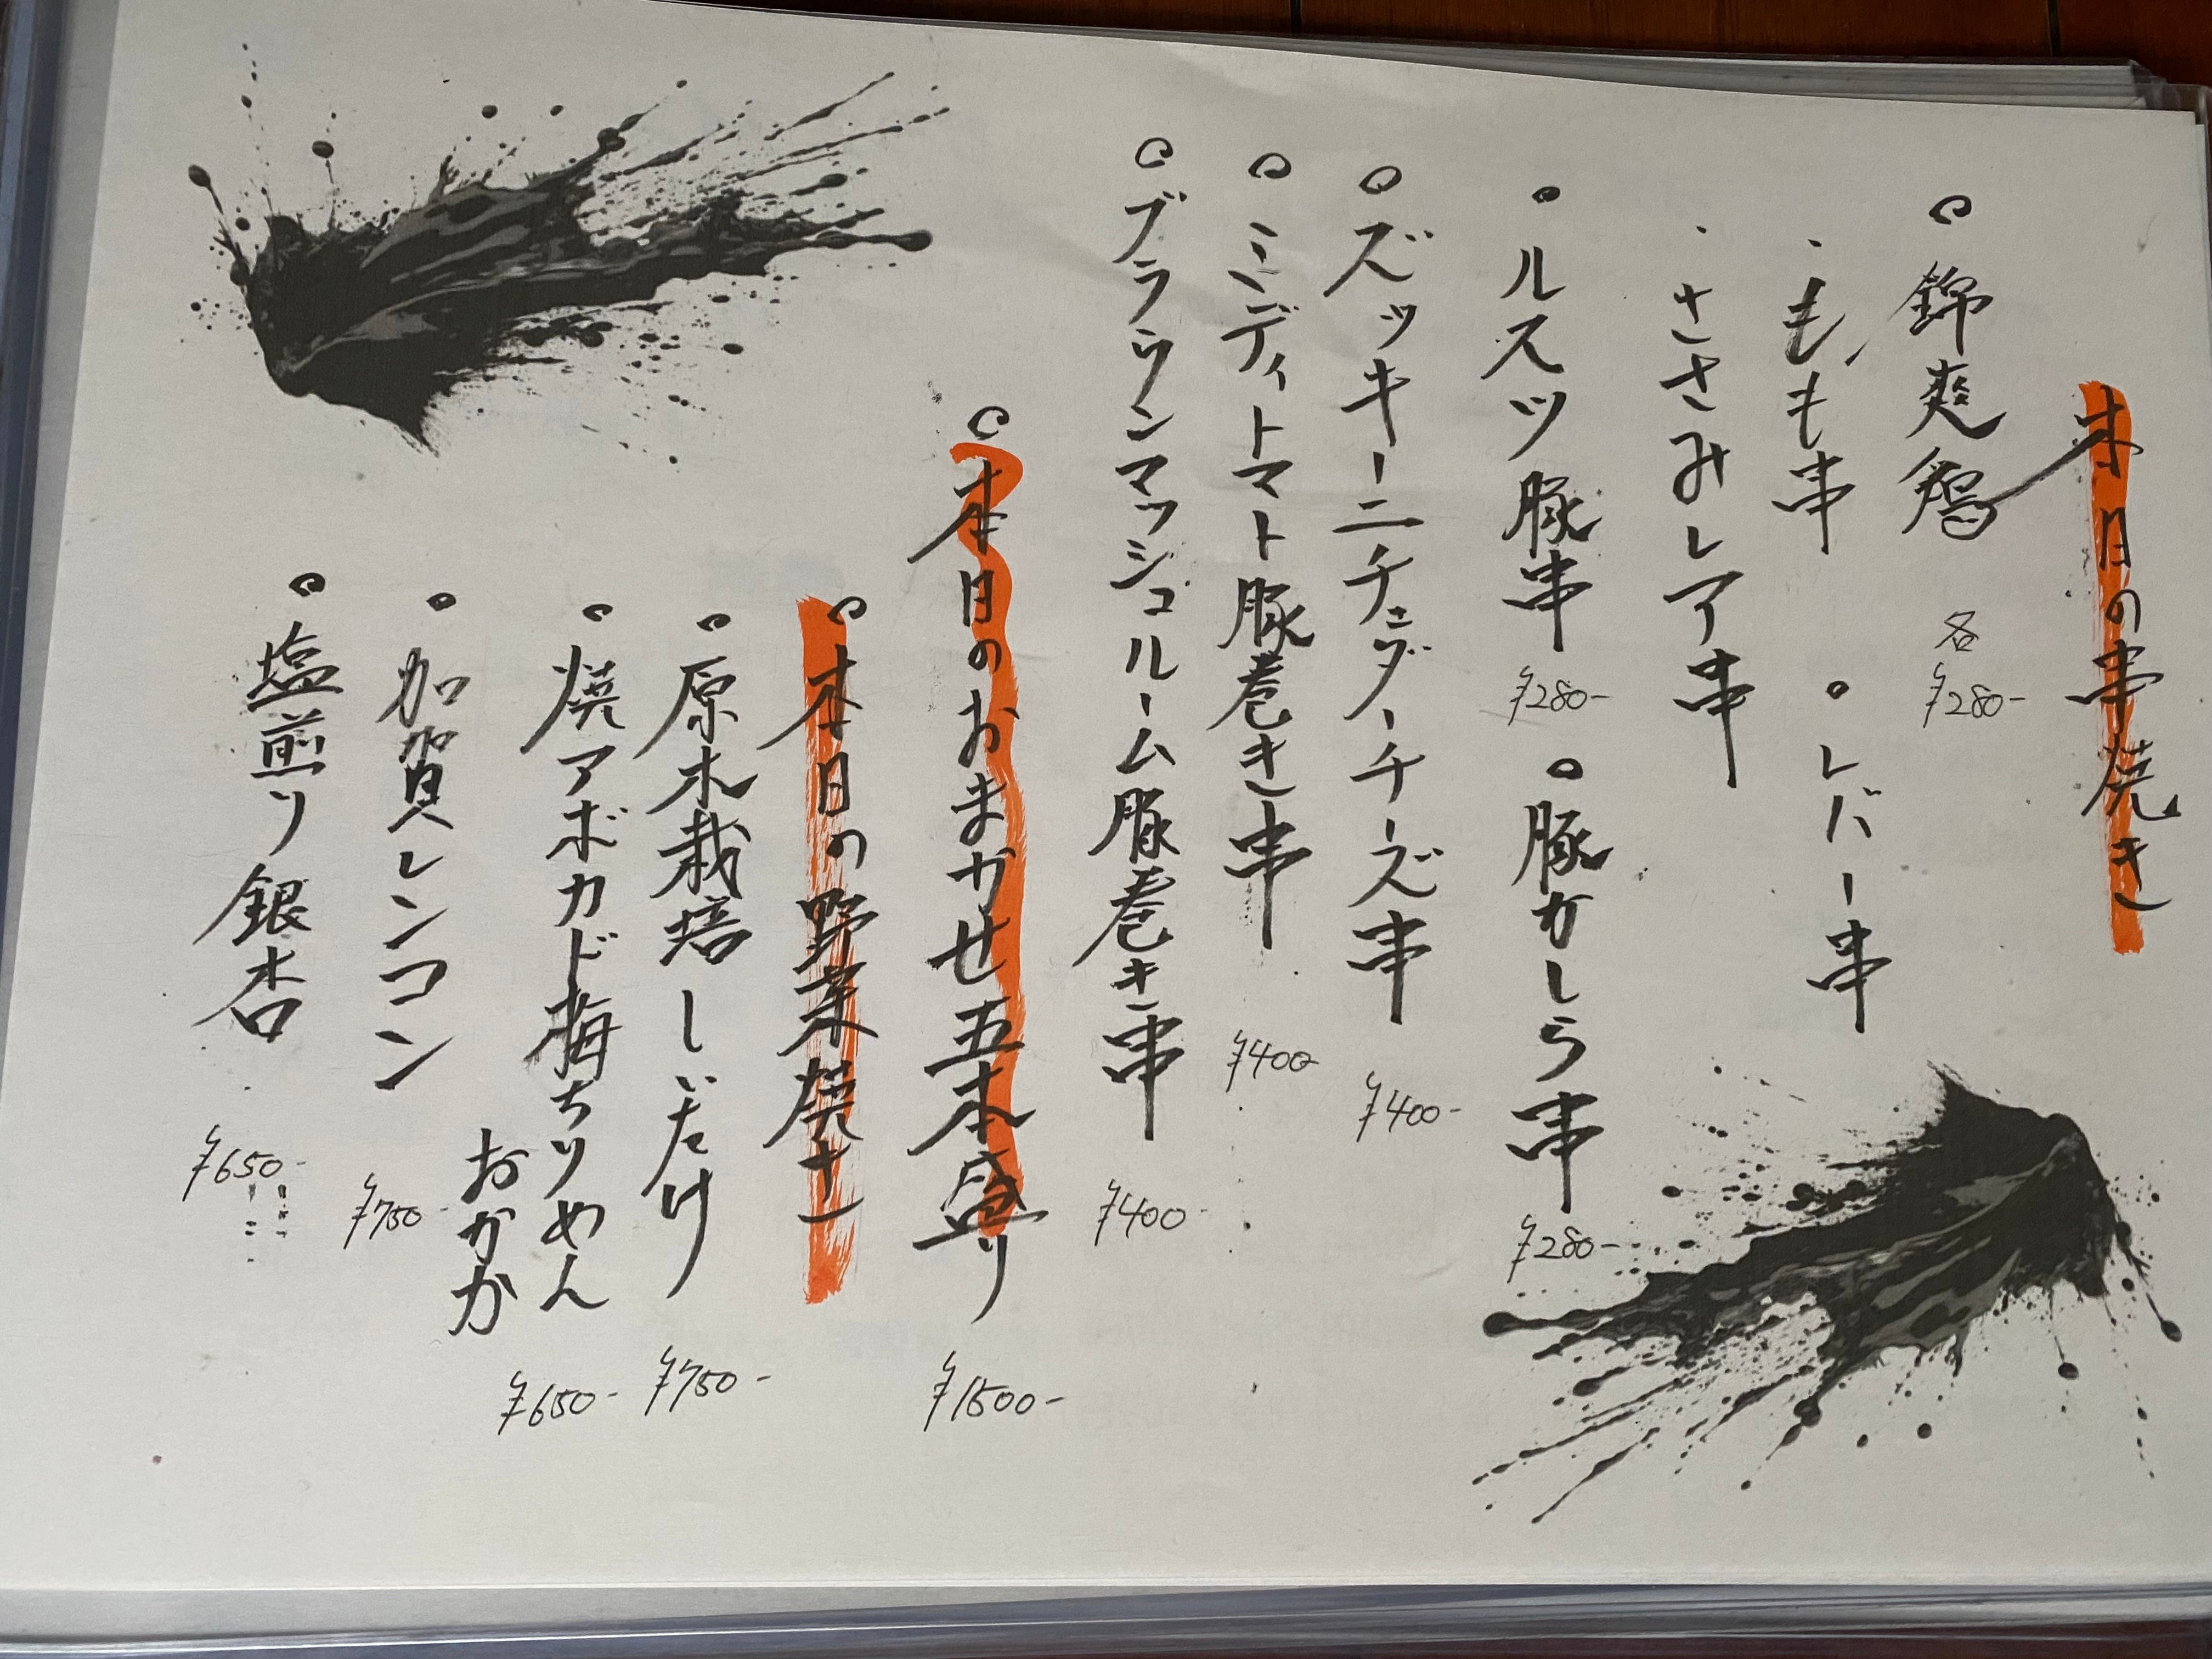 本日の串焼き
錦爽鶏 各¥280-
・もも串 ・レバー串
・ささみレア串
・ルスツ豚串 ¥280- ・豚かしら串 ¥280-
・ズッキーニチェダーチーズ串 ¥400-
・ミディトマト豚巻き串 ¥400-
・ブラウンマッシュルーム豚巻き串 ¥400-
・本日のおまかせ五本盛り ¥1500-
・本日の野菜焼き
・原木栽培しいたけ ¥750-
・焼アボカド梅ちりめん
おかか ¥650-
・加賀レンコン ¥750-
・塩煎り銀杏 ¥650-